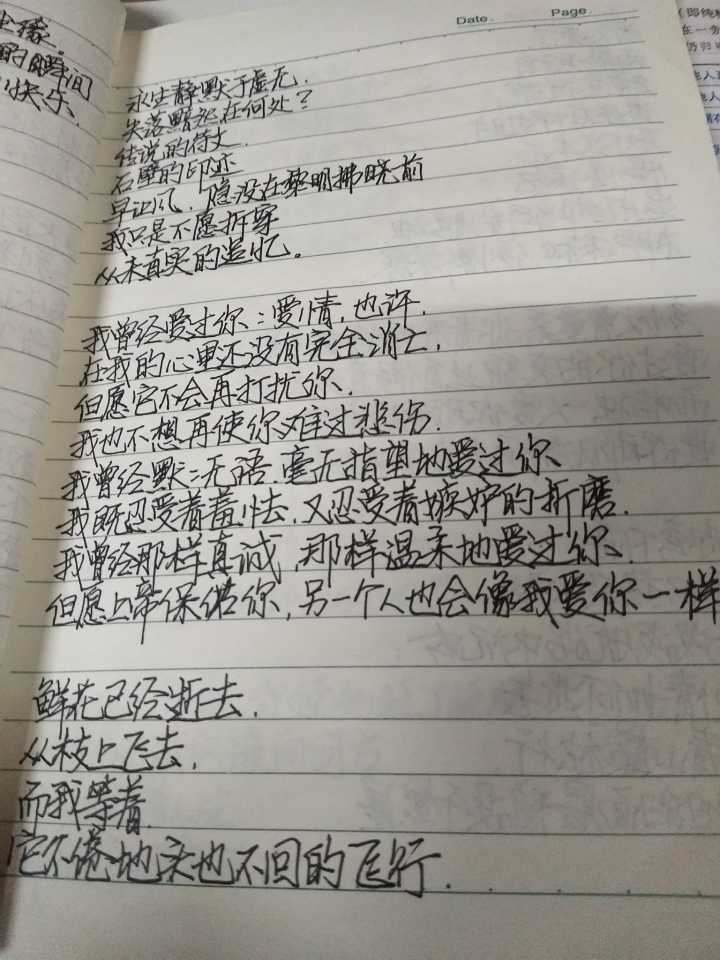 Date.
Page.
的瞬间
快乐.
永生静默于虚无.
失落黯淡在何处?
传说的
石壁的印迹
早让风.隐没在黎明拂晓前
我只是不愿拆穿
从未真实的追忆。
我曾经爱过你:爱情,也许.
在我的心里还没有完全消亡,
但愿它不会再打扰你.
我也不想再使你难过悲伤.
我曾经默:无语.毫无指望地爱过你.
我既忍受着羞怯,又忍受着嫉妒的折磨.
我曾经那样真诚,那样温柔地爱过你.
但愿上帝保偌你,另一个人也会像我爱你一样
鲜花已经逝去.
从枝上飞去,
而我等着.
它不倦地头也不回的飞行.